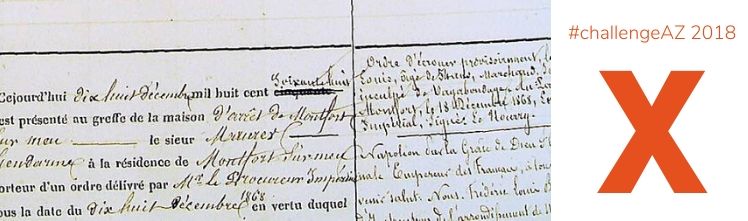 Cejourd'hui dix huit décembre mil huit cent soixante huit cinquante
est présenté au greffe de la maison d'arrêt de Montfort
sur meu le sieur Meurer
Gendarme à la résidence de Montfort sur meu
porteur d'un ordre délivré par Mr le Procureur Impérial
sous la date du dix huit décembre 1868 en vertu duquel
Ordre d'écrouer provisoirement le
Louis, âgé de ans, Marchand,
inculpé de Vagabondage.
Montfort, le 18 Décembre 1868, Le
Impérial, Signé Le Nourry.
Napoléon par la Grâce de Dieu
nale Empereur des Français, à tous
venir salut. Nous, Frédéric Louis
d'Instruction de l'arrondissement de
#challengeAZ 2018
X